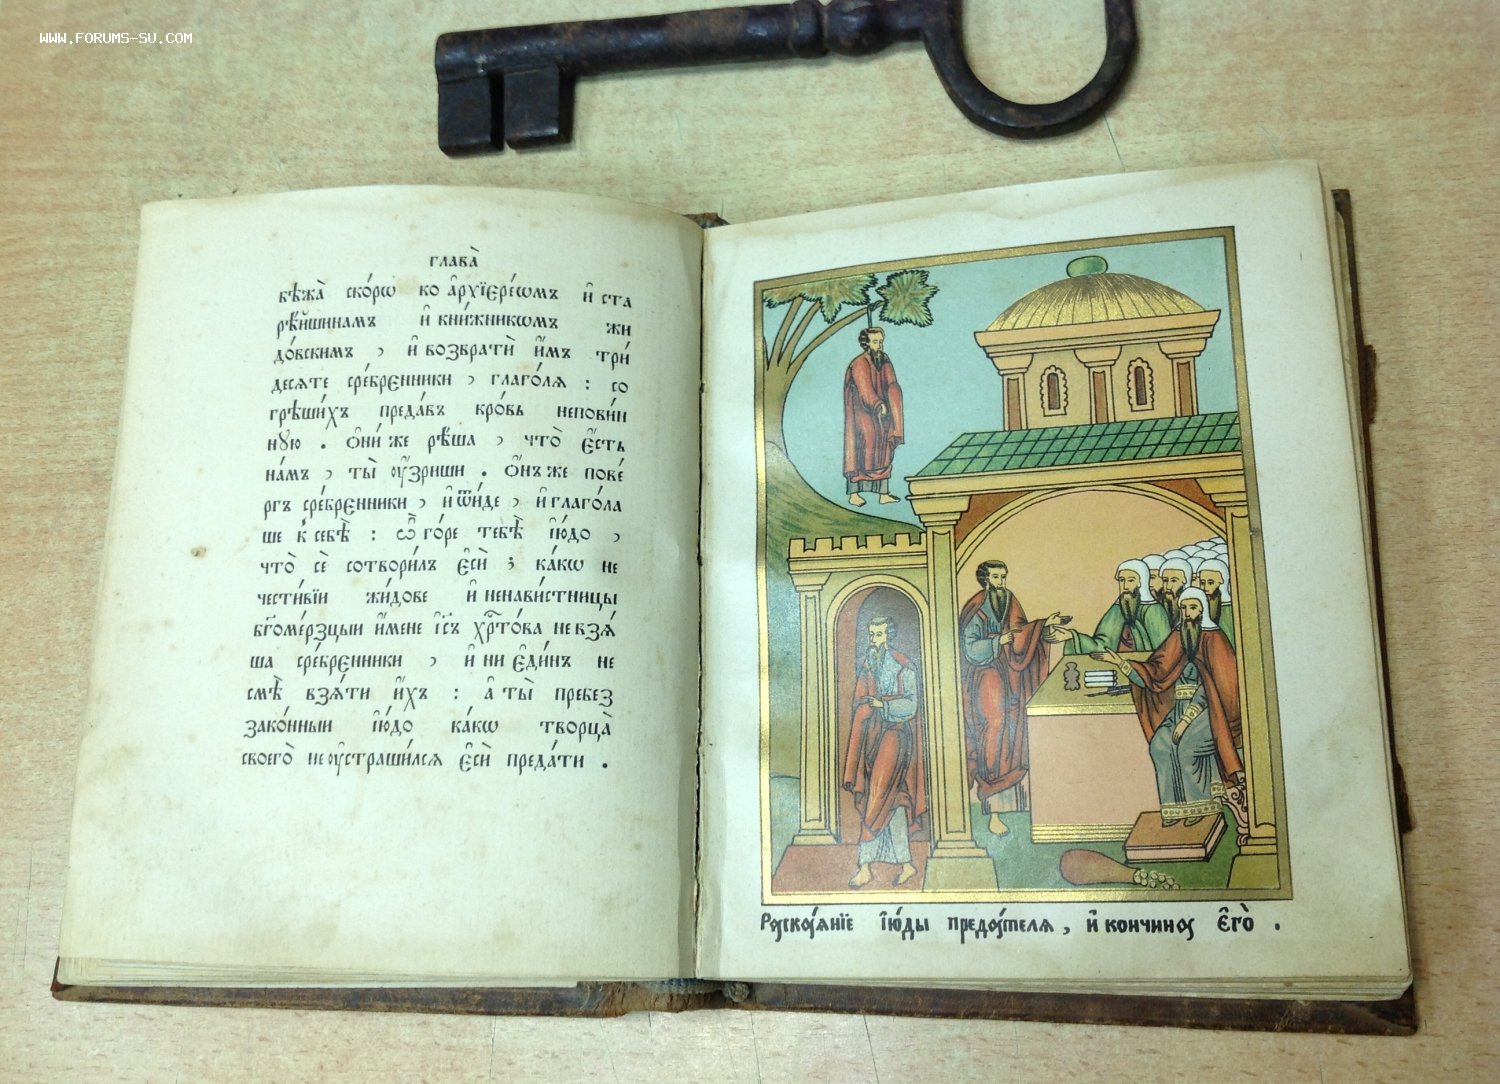 WWW.FORUMS-SU.COM
глава̀
бѣжа̀ ско́рѡ ко а҆рхїере́ѡмъ и҆ ста
рѣ́йшинамъ и҆ кни́жникѡмъ жи
до́вскимъ , и҆ возвратѝ и҆̀мъ три́
десѧте сре́бренники , глаго́лѧ : со
грѣши́хъ преда́въ кро́вь непови́н
нꙋю . ѻ҆ни́ же рѣ́ша , что̀ є҆́сть
на́мъ , ты̀ ᲂу҆́зриши . ѻ҆́нъ же пове́
ргъ сре́бренники , и҆ ѿи́де , и҆ глаго́ла
ше к̾ себѣ̀ : ѽ го́ре тебѣ̀ і҆ю́до ,
что̀ сѐ сотвори́лъ є҆сѝ ; ка́кѡ не
чести́вїи жи́дове и҆ ненави́стницы
бг҃оме́рзцыи и҆́мене і҆с҃ъ хрⷭ҇то́ва не взѧ́
ша сре́бренники , и҆ ни є҆ди́нъ не
смѣ̀ взѧ́ти и҆́хъ : а҆ ты̀ пребез
зако́нныи і҆ю́до ка́кѡ творца̀
своего̀ не ᲂу҆страши́лсѧ є҆сѝ преда́ти .
Раскаѧ́нїе і҆ю́ды преда́телѧ , и҆ кончина є҆гѡ̀ .